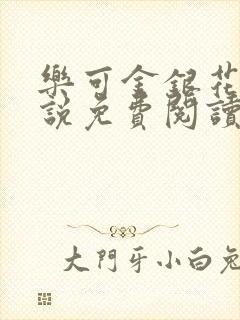 樂可金銀花
說免費閱讀
大門牙小白兔